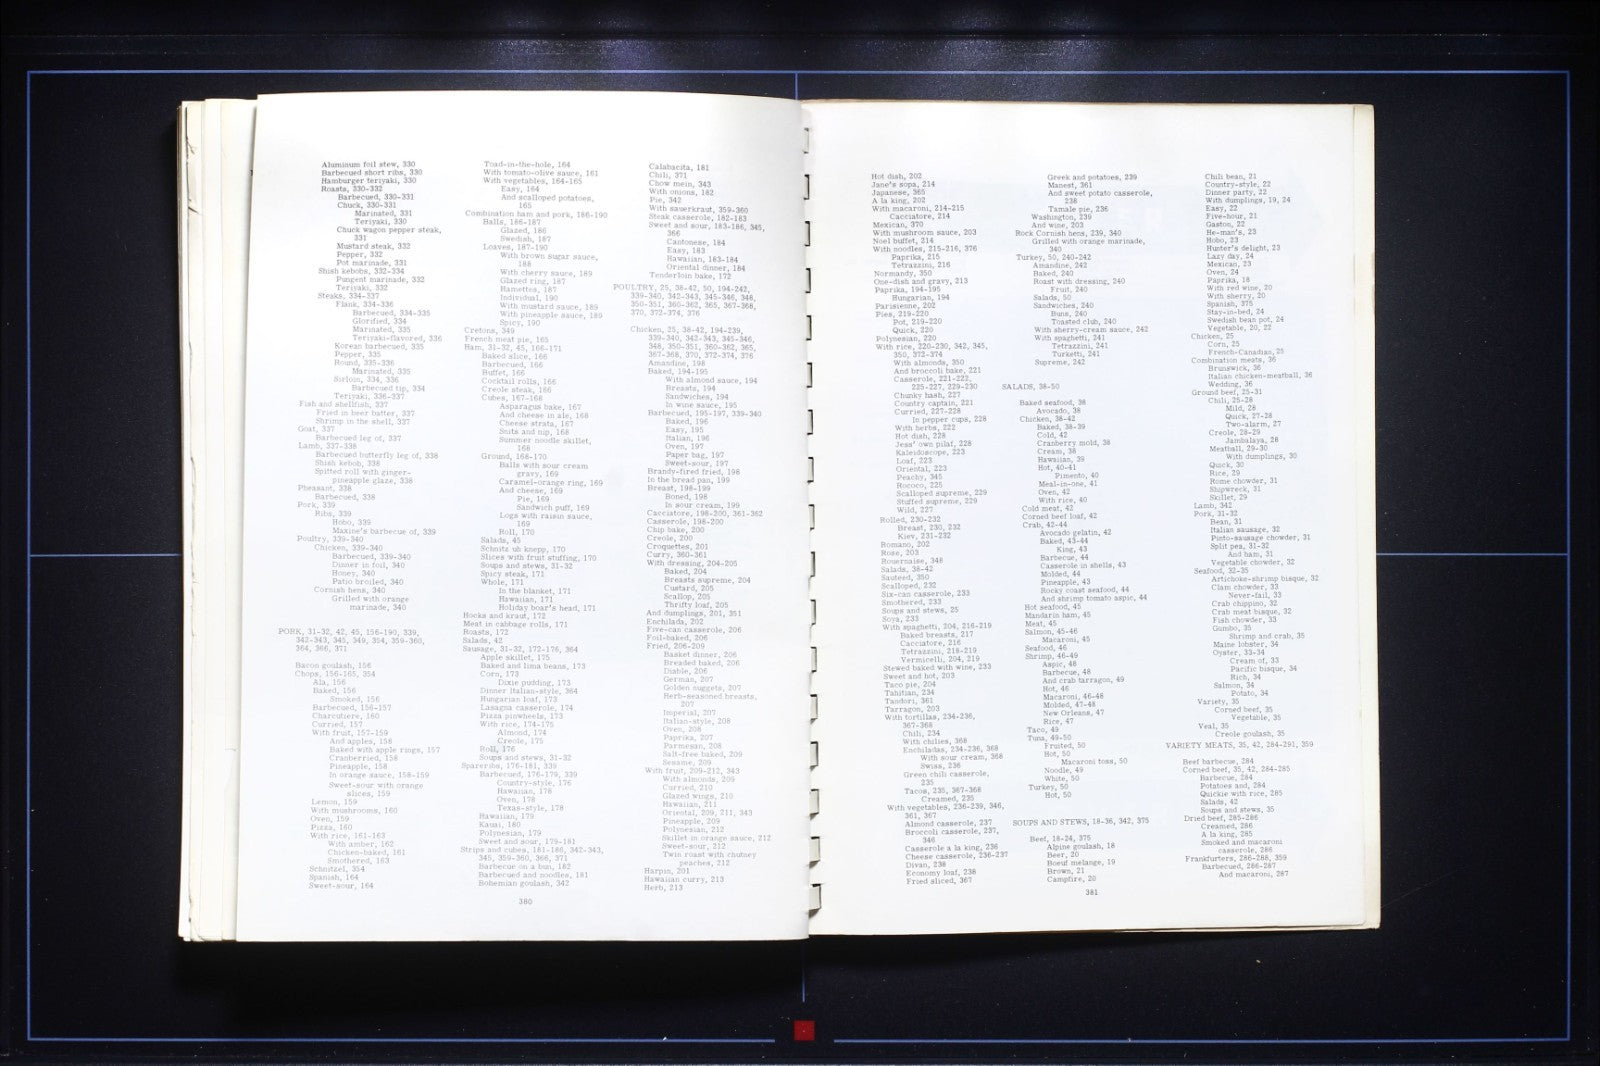 Aluminum foil stew, 330
Barbecued short ribs, 330
Hamburger teriyaki, 330
Roasts, 330-332
Barbecued, 330-331
Chuck, 330-331
Marinated, 331
Teriyaki, 330
Chuck wagon pepper steak,
331
Mustard steak, 332
Pepper, 332
Pot marinade, 331
Shish kebobs, 332-334
Pungent marinade, 332
Teriyaki, 332
Steaks, 334-337
Flank, 334-336
Barbecued, 334-335
Glorified, 334
Marinated, 335
Teriyaki-flavored, 336
Korean barbecued, 335
Pepper, 335
Round, 335-336
Marinated, 335
Sirloin, 334, 336
Barbecued tip, 334
Teriyaki, 336-337
Fish and shellfish, 337
Fried in beer batter, 337
Shrimp in the shell, 337
Goat, 337
Barbecued leg of, 337
Lamb, 337-338
Barbecued butterfly leg of, 338
Shish kebob, 338
Spitted roll with ginger-
pineapple glaze, 338
Pheasant, 338
Barbecued, 338
Pork, 339
Ribs, 339
Hobo, 339
Maxine's barbecue of, 339
Poultry, 339-340
Chicken, 339-340
Barbecued, 339-340
Dinner in foil, 340
Honey, 340
Patio broiled, 340
Cornish hens, 340
Grilled with orange
marinade, 340
PORK, 31-32, 42, 45, 156-190, 339,
342-343, 345, 349, 354, 359-360,
364, 366, 371
Bacon goulash, 156
Chops, 156-165, 354
Ala, 156
Baked, 156
Smoked, 156
Barbecued, 156-157
Charcutiere, 160
Curried, 157
With fruit, 157-159
And apples, 158
Baked with apple rings, 157
Cranberried, 158
Pineapple, 158
In orange sauce, 158-159
Sweet-sour with orange
slices, 159
Lemon, 159
With mushrooms, 160
Oven, 159
Pizza, 160
With rice, 161-163
With amber, 162
Chicken-baked, 161
Smothered, 163
Schnitzel, 354
Spanish, 164
Sweet-sour, 164
Toad-in-the-hole, 164
With tomato-olive sauce, 161
With vegetables, 164-165
Easy, 164
And scalloped potatoes,
165
Combination ham and pork, 186-190
Balls, 186-187
Glazed, 186
Swedish, 187
Loaves, 187-190
With brown sugar sauce,
188
With cherry sauce, 189
Glazed ring, 187
Hamettes, 187
Individual, 190
With mustard sauce, 189
With pineapple sauce, 189
Spicy, 190
Cretons, 349
French meat pie, 165
Ham, 31-32, 45, 166-171
Baked slice, 166
Barbecued, 166
Buffet, 166
Cocktail rolls, 166
Creole steak, 166
Cubes, 167-168
Asparagus bake, 167
And cheese in ale, 168
Cheese strata, 167
Suits and nip, 168
Summer noodle skillet,
168
Ground, 168-170
Balls with sour cream
gravy, 169
Caramel-orange ring, 169
And cheese, 169
Pie, 169
Sandwich puff, 169
Logs with raisin sauce,
169
Roll, 170
Salads, 45
Schnitz uh knepp, 170
Slices with fruit stuffing, 170
Soups and stews, 31-32
Spicy steak, 171
Whole, 171
In the blanket, 171
Hawaiian, 171
Holiday boar's head, 171
Hocks and kraut, 172
Meat in cabbage rolls, 171
Roasts, 172
Salads, 42
Sausage, 31-32, 172-176, 364
Apple skillet, 175
Baked and lima beans, 173
Corn, 173
Dixie pudding, 173
Dinner Italian-style, 364
Hungarian loaf, 173
Lasagna casserole, 174
Pizza pinwheels, 173
With rice, 174-175
Almond, 174
Creole, 175
Roll, 176
Soups and stews, 31-32
Spareribs, 176-181, 339
Barbecued, 176-179, 339
Country-style, 176
Hawaiian, 178
Oven, 178
Texas-style, 178
Hawaiian, 179
Kauai, 180
Polynesian, 179
Sweet and sour, 179-181
Strips and cubes, 181-186, 342-343,
345, 359-360, 366, 371
Barbecue on a bun, 182
Barbecued and noodles, 181
Bohemian goulash, 342
Calabacita, 181
Chili, 371
Chow mein, 343
With onions, 182
Pie, 342
With sauerkraut, 359-360
Steak casserole, 182-183
Sweet and sour, 183-186, 345,
366
Cantonese, 184
Easy, 183
Hawaiian, 183-184
Oriental dinner, 184
Tenderloin bake, 172
POULTRY, 25, 38-42, 50, 194-242,
339-340, 342-343, 345-346, 348,
350-351, 360-362, 365, 367-368,
370, 372-374, 376
Chicken, 25, 38-42, 194-239,
339-340, 342-343, 345-346,
348, 350-351, 360-362, 365,
367-368, 370, 372-374, 376
Amandine, 198
Baked, 194-195
With almond sauce, 194
Breasts, 194
Sandwiches, 194
In wine sauce, 195
Barbecued, 195-197, 339-340
Baked, 196
Easy, 195
Italian, 196
Oven, 197
Paper bag, 197
Sweet-sour, 197
Brandy-fired fried, 198
In the bread pan, 199
Breast, 198-199
Boned, 198
In sour cream, 199
Cacciatore, 198-200, 361-362
Casserole, 198-200
Chip bake, 200
Creole, 200
Croquettes, 201
Curry, 360-361
With dressing, 204-205
Baked, 204
Breasts supreme, 204
Custard, 205
Scallop, 205
Thrifty loaf, 205
And dumplings, 201, 351
Enchilada, 202
Five-can casserole, 206
Foil-baked, 206
Fried, 206-209
Basket dinner, 206
Breaded baked, 206
Diable, 206
German, 207
Golden nuggets, 207
Herb-seasoned breasts,
207
Imperial, 207
Italian-style, 208
Oven, 208
Paprika, 207
Parmesan, 208
Salt-free baked, 209
Sesame, 209
With fruit, 209-212, 343
With almonds, 209
Curried, 210
Glazed wings, 210
Hawaiian, 211
Oriental, 209, 211, 343
Pineapple, 209
Polynesian, 212
Skillet in orange sauce, 212
Sweet-sour, 212
Twin roast with chutney
peaches, 212
Harpin, 201
Hawaiian curry, 213
Herb, 213
380
Hot dish, 202
Jane's sopa, 214
Japanese, 365
A la king, 202
With macaroni, 214-215
Cacciatore, 214
Mexican, 370
With mushroom sauce, 203
Noel buffet, 214
With noodles, 215-216, 376
Paprika, 215
Tetrazzini, 216
Normandy, 350
One-dish and gravy, 213
Paprika, 194-195
Hungarian, 194
Parisienne, 202
Pies, 219-220
Pot, 219-220
Quick, 220
Polynesian, 220
With rice, 220-230, 342, 345,
350, 372-374
With almonds, 350
And broccoli bake, 221
Casserole, 221-222,
225-227, 229-230
Chunky hash, 227
Country captain, 221
Curried, 227-228
In pepper cups, 228
With herbs, 222
Hot dish, 228
Jess' own pilaf, 228
Kaleidoscope, 223
Loaf, 223
Oriental, 223
Peachy, 345
Rococo, 225
Scalloped supreme, 229
Stuffed supreme, 229
Wild, 227
Rolled, 230-232
Breast, 230, 232
Kiev, 231-232
Romano, 202
Rose, 203
Rouernaise, 348
Salads, 38-42
Sauteed, 350
Scalloped, 232
Six-can casserole, 233
Smothered, 233
Soups and stews, 25
Soya, 233
With spaghetti, 204, 216-219
Baked breasts, 217
Cacciatore, 216
Tetrazzini, 218-219
Vermicelli, 204, 219
Stewed baked with wine, 233
Sweet and hot, 203
Taco pie, 204
Tahitian, 234
Tandori, 361
Tarragon, 203
With tortillas, 234-236,
367-368
Chili, 234
With chilies, 368
Enchiladas, 234-236, 368
With sour cream, 368
Swiss, 236
Green chili casserole,
235
Tacos, 235, 367-368
Creamed, 235
With vegetables, 236-239, 346,
361, 367
Almond casserole, 237
Broccoli casserole, 237,
346
Casserole a la king, 236
Cheese casserole, 236-237
Divan, 238
Economy loaf, 238
Fried sliced, 367
Greek and potatoes, 239
Manest, 361
And sweet potato casserole,
238
Tamale pie, 236
Washington, 239
And wine, 203
Rock Cornish hens, 239, 340
Grilled with orange marinade,
340
Turkey, 50, 240-242
Amandine, 242
Baked, 240
Roast with dressing, 240
Fruit, 240
Salads, 50
Sandwiches, 240
Buns, 240
Toasted club, 240
With sherry-cream sauce, 242
With spaghetti, 241
Tetrazzini, 241
Turketti, 241
Supreme, 242
SALADS, 38-50
Baked seafood, 38
Avocado, 38
Chicken, 38-42
Baked, 38-39
Cold, 42
Cranberry mold, 38
Cream, 38
Hawaiian, 39
Hot, 40-41
Pimento, 40
Meal-in-one, 41
Oven, 42
With rice, 40
Cold meat, 42
Corned beef loaf, 42
Crab, 42-44
Avocado gelatin, 42
Baked, 43-44
King, 43
Barbecue, 44
Casserole in shells, 43
Molded, 44
Pineapple, 43
Rocky coast seafood, 44
And shrimp tomato aspic, 44
Hot seafood, 45
Mandarin ham, 45
Meat, 45
Salmon, 45-46
Macaroni, 45
Seafood, 46
Shrimp, 46-49
Aspic, 48
Barbecue, 48
And crab tarragon, 49
Hot, 46
Macaroni, 46-48
Molded, 47-48
New Orleans, 47
Rice, 47
Taco, 49
Tuna, 49-50
Fruited, 50
Hot, 50
Macaroni toss, 50
Noodle, 49
White, 50
Turkey, 50
Hot, 50
SOUPS AND STEWS, 18-36, 342, 375
Beef, 18-24, 375
Alpine goulash, 18
Beer, 20
Boeuf melange, 19
Brown, 21
Campfire, 20
Chili bean, 21
Country-style, 22
Dinner party, 22
With dumplings, 19, 24
Easy, 22
Five-hour, 21
Gaston, 22
He-man's, 23
Hobo, 23
Hunter's delight, 23
Lazy day, 24
Mexican, 23
Oven, 24
Paprika, 18
With red wine, 20
With sherry, 20
Spanish, 375
Stay-in-bed, 24
Swedish bean pot, 24
Vegetable, 20, 22
Chicken, 25
Corn, 25
French-Canadian, 25
Combination meats, 36
Brunswick, 36
Italian chicken-meatball, 36
Wedding, 36
Ground beef, 25-31
Chili, 25-28
Mild, 28
Quick, 27-28
Two-alarm, 27
Creole, 28-29
Jambalaya, 28
Meatball, 29-30
With dumplings, 30
Quick, 30
Rice, 29
Rome chowder, 31
Shipwreck, 31
Skillet, 29
Lamb, 342
Pork, 31-32
Bean, 31
Italian sausage, 32
Pinto-sausage chowder, 31
Split pea, 31-32
And ham, 31
Vegetable chowder, 32
Seafood, 32-35
Artichoke-shrimp bisque, 32
Clam chowder, 33
Never-fail, 33
Crab chippino, 32
Crab meat bisque, 32
Fish chowder, 33
Gumbo, 35
Shrimp and crab, 35
Maine lobster, 34
Oyster, 33-34
Cream of, 33
Pacific bisque, 34
Rich, 34
Salmon, 34
Potato, 34
Variety, 35
Corned beef, 35
Vegetable, 35
Veal, 35
Creole goulash, 35
VARIETY MEATS, 35, 42, 284-291, 359
Beef barbecue, 284
Corned beef, 35, 42, 284-285
Barbecue, 284
Potatoes and, 284
Quickie with rice, 285
Salads, 42
Soups and stews, 35
Dried beef, 285-286
Creamed, 286
A la king, 285
Smoked and macaroni
casserole, 286
Frankfurters, 286-288, 359
Barbecued, 286-287
And macaroni, 287
381